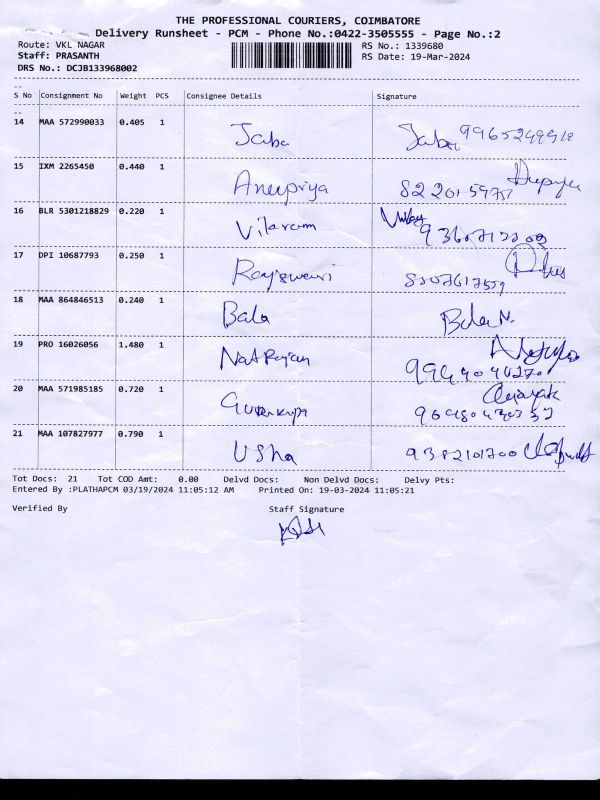 THE PROFESSIONAL COURIERS, COIMBATORE
Delivery Runsheet - PCM - Phone No.:0422-3505555 - Page No.:2
Route: VKL NAGAR RS No.: 1339680
Staff: PRASANTH RS Date: 19-Mar-2024
DRS No.: DCJB133968002
S No Consignment No Weight PCS Consignee Details Signature
14 MAA 572990033 0.405 1 Jaba
15 IXM 2265450 0.440 1 Anupriya
16 BLR 5301218829 0.220 1 Vilaram
17 DPI 10687793 0.250 1 Rajswari
18 MAA 864846513 0.240 1 Bala Bala N.
19 PRO 16026056 1.480 1 Natrajan
20 MAA 571985185 0.720 1
21 MAA 107827977 0.790 1 Usha 9382101700
Tot Docs: 21 Tot COD Amt: 0.00 Delvd Docs: Non Delvd Docs: Delvy Pts:
Entered By :PLATHAPCM 03/19/2024 11:05:12 AM Printed On: 19-03-2024 11:05:21
Verified By Staff Signature